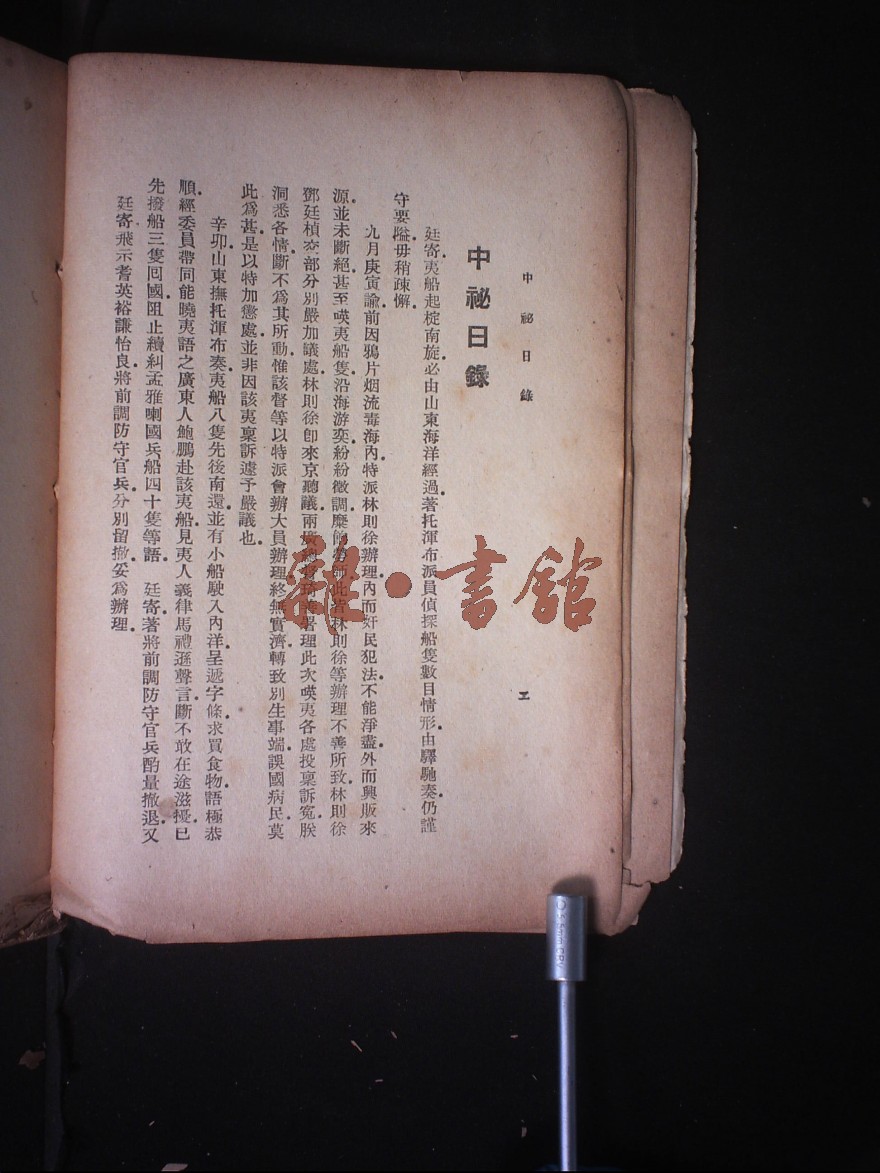 中祕日錄
工
中祕日錄
廷寄夷船起椗南旋必由山東海洋經過著托渾布派員偵探船隻數目情形由驛馳奏仍謹
守要隘毋稍疎懈
九月庚寅諭前因鴉片烟流毒海內特派林則徐辦理內而奸民犯法不能淨盡外而興販來
源並未斷絕甚至嘆夷船隻沿海游奕紛紛徵調糜餉勞師此皆林則徐等辦理不善所致林則徐
鄧廷楨交部分別嚴加議處林則徐卽來京聽議兩廣總督琦善署理此次嘆夷各處投稟訴寃朕
洞悉各情斷不為其所動惟該督等以特派會辦大員辦理終無實濟轉致別生事端誤國病民莫
此為甚是以特加懲處並非因該夷稟訴遽予嚴議也
辛卯山東撫托渾布奏夷船八隻先後南還並有小船駛入內洋呈遞字條求買食物語極恭
順經委員帶同能曉夷語之廣東人鮑鵬赴該夷船見夷人義律馬禮遜聲言斷不敢在途滋擾已
先撥船三隻囘國阻止續糾孟雅喇國兵船四十隻等語 廷寄著將前調防守官兵酌量撤退又
廷寄飛示耆英裕謙怡良將前調防守官兵分別留撤妥為辦理
雜·書館